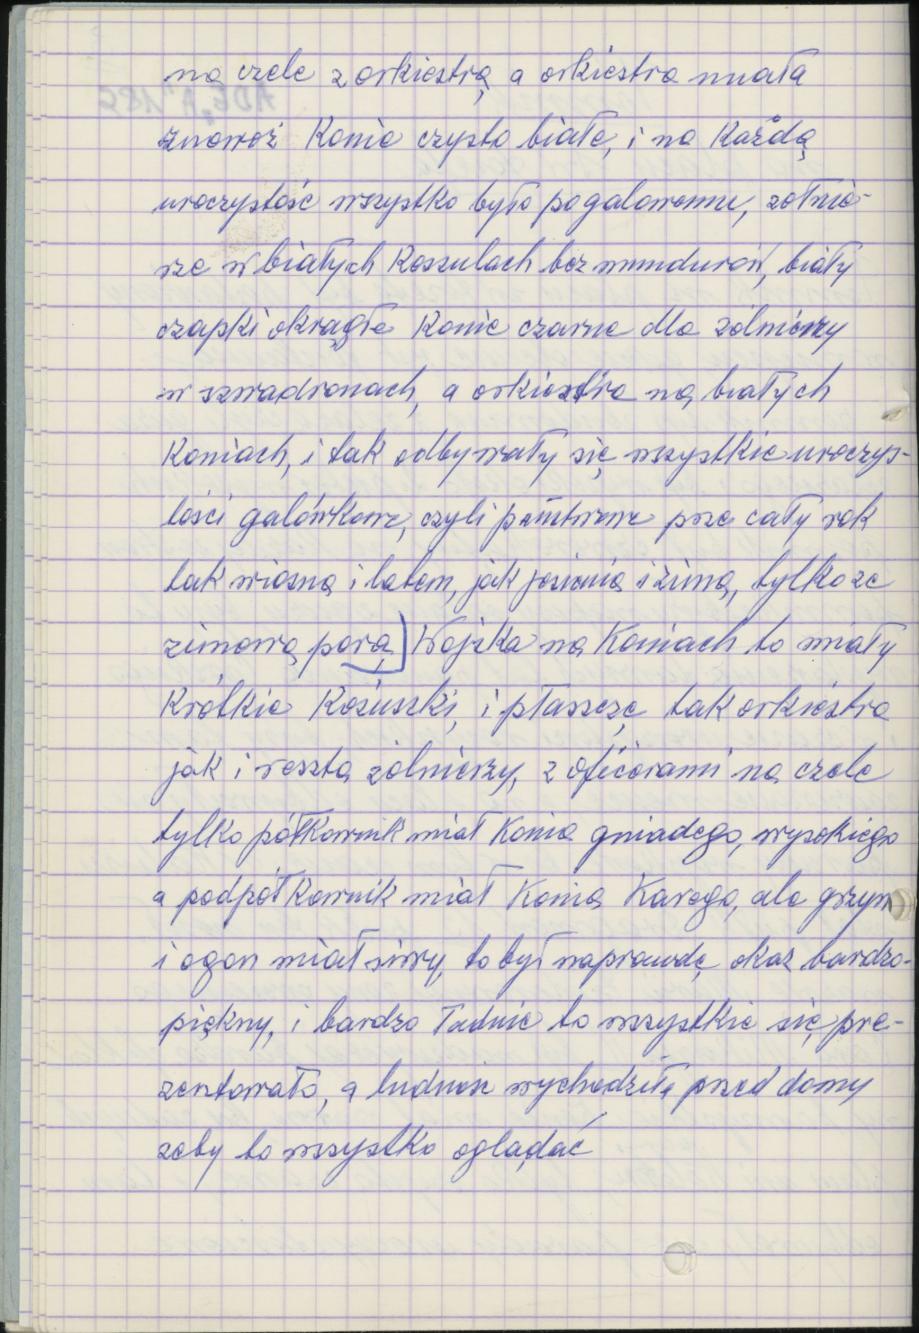 na czele z orkiestrą a orkiestra miała
znowóż Konie czysto białe, i na Każdą
uroczystość wszystko było pogalowemu, żołnie-
rze w białych Koszulach bez mundurów, biały
czapki okrągłe Konie czarne dla żólnierzy
w szwadronach, a orkiestra na białych
Koniach, i tak odbywały się wszystkie uroczys-
tości galówkowe, czyli państwowe prze cały rok
tak wiosną i latem, jak jesienią i zimą, tylko ze
zimową porą Wojska na Koniach to miały
Krótkie Kożuszki, i płaszcze tak orkiestra
jak i reszta żólnierzy, z oficerami na czele
tylko półkownik miał Konia gniadego, wysokiego
a podpółkownik miał Konia Karego, ale grzyw
i ogon miał siwy, to był naprawdę okaz bardzo-
piękny, i bardzo ładnie to wszystkie się pre-
zentowało, a ludność wychodziła przed domy
zeby to wszystko oglądać